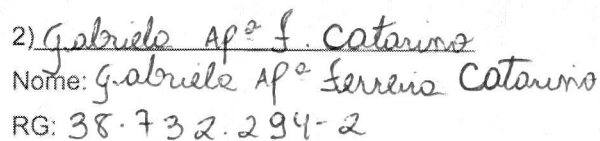 2) Gabriela Apª F. Catarino
Nome: Gabriela Apª Ferreira Catarino
RG: 38.732.294-2